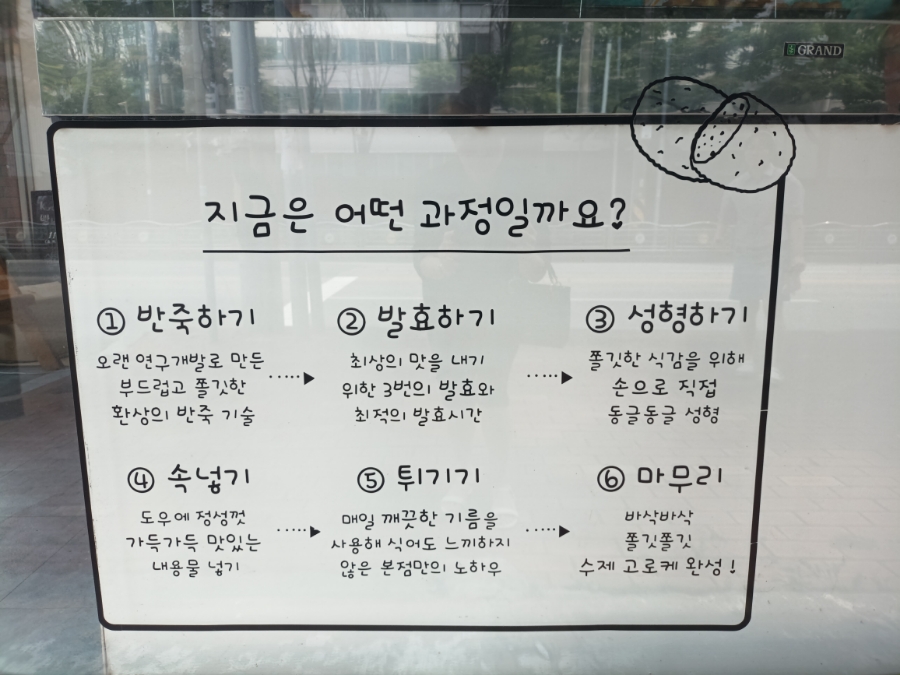 GRAND
지금은 어떤 과정일까요?
① 반죽하기
오랜 연구개발로 만든
부드럽고 쫄깃한
환상의 반죽 기술
② 발효하기
최상의 맛을 내기
위한 3번의 발효와
최적의 발효시간
③ 성형하기
쫄깃한 식감을 위해
손으로 직접
동글동글 성형
④ 속넣기
도우에 정성껏
가득가득 맛있는
내용물 넣기
⑤ 튀기기
매일 깨끗한 기름을
사용해 식어도 느끼하지
않은 본점만의 노하우
⑥ 마무리
바삭바삭
쫄깃쫄깃
수제 고로케 완성!